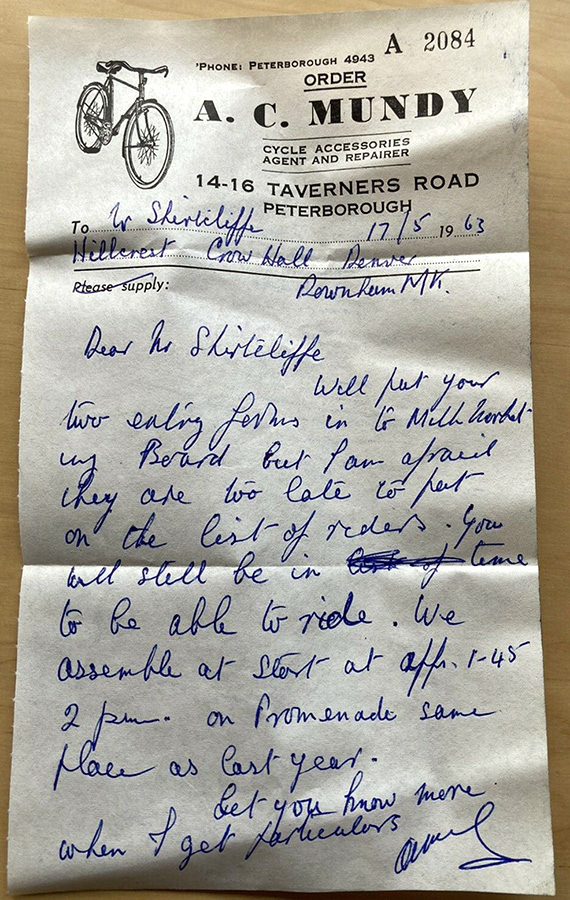 'PHONE: PETERBOROUGH 4943 A 2084
ORDER
A. C. MUNDY
CYCLE ACCESSORIES
AGENT AND REPAIRER
14-16 TAVERNERS ROAD
PETERBOROUGH
To W Shirtcliffe 17/5 1963
Hillcrest Crow Hall Denver
Please supply: Downham Mk.
Dear Mr Shirtcliffe
Will put your
two entry forms in to Milk Market-
ing Board but I am afraid
they are too late to put
on the list of riders. You
will still be in time
to be able to ride. We
assemble at start at appr. 1-45
2 pm. on Promenade same
place as last year.
Let you know more
when I get particulars